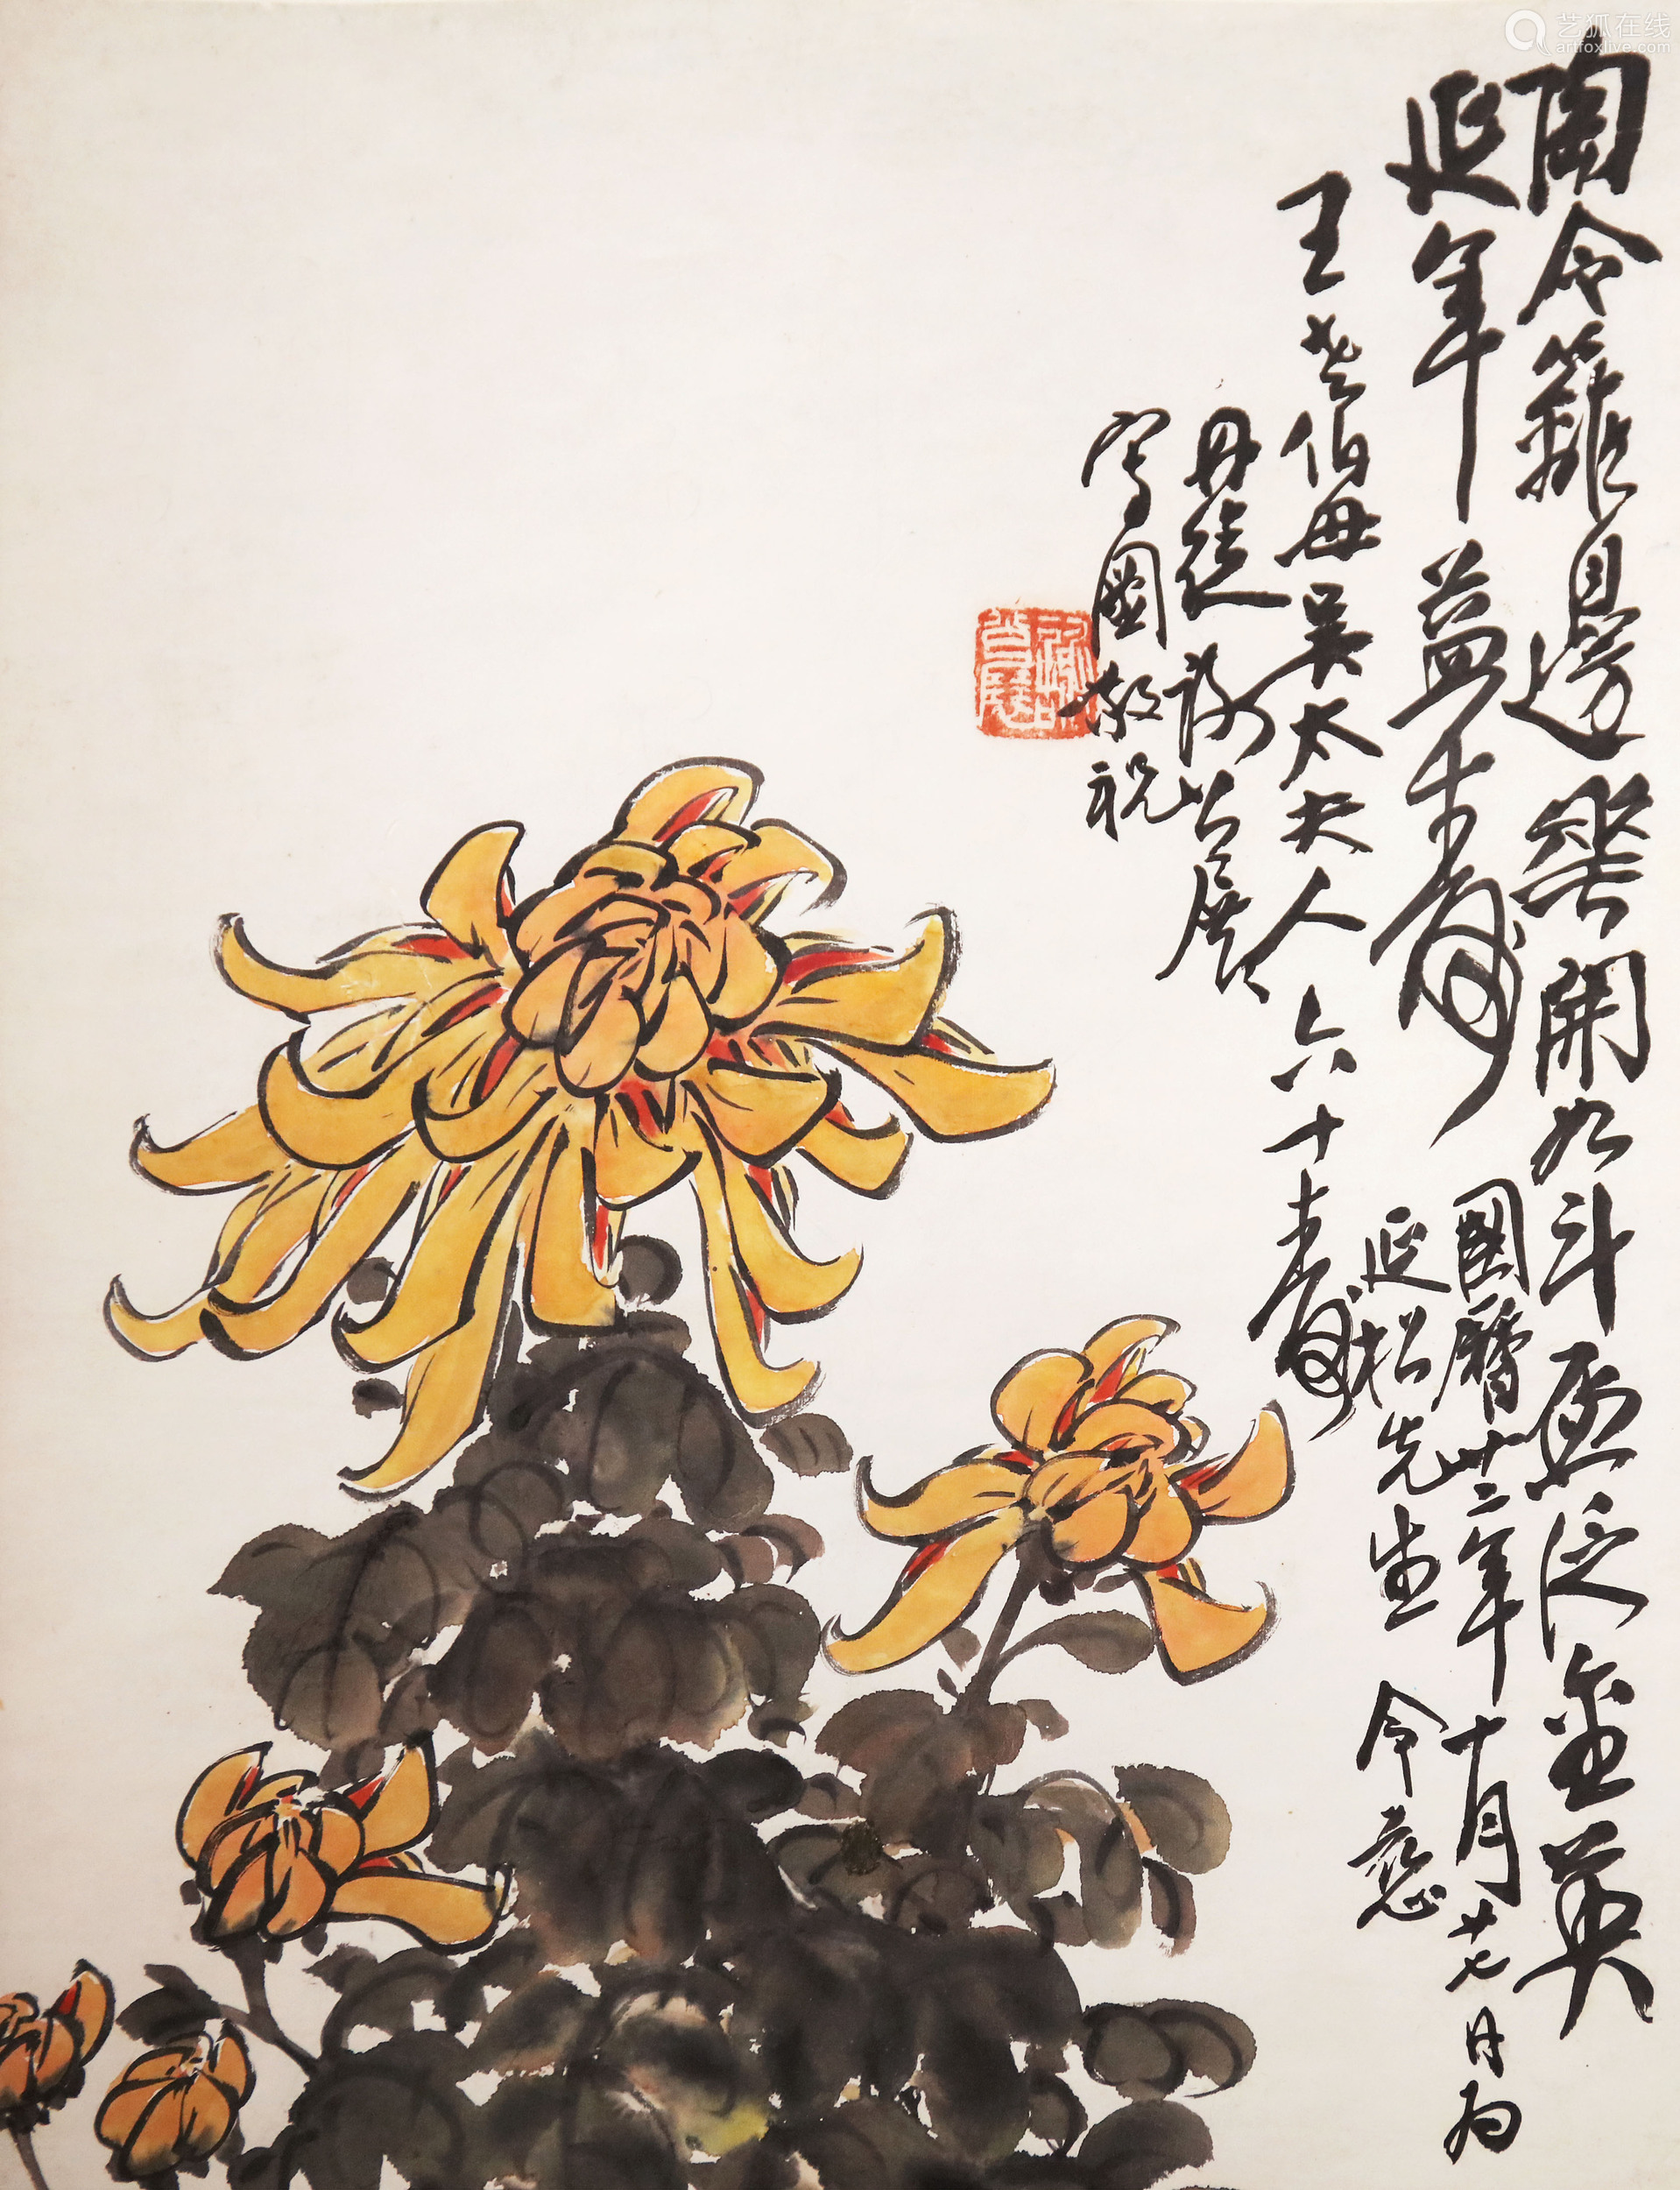 陶令籬邊華開如斗 酒泛金英
延年益壽 國曆廿二年十月廿七日為
延松先生 令慈
王老伯母吳太夫人六十壽
丹徒謝公展
寫圖敬祝
艺狐在线
artfoxlive.com